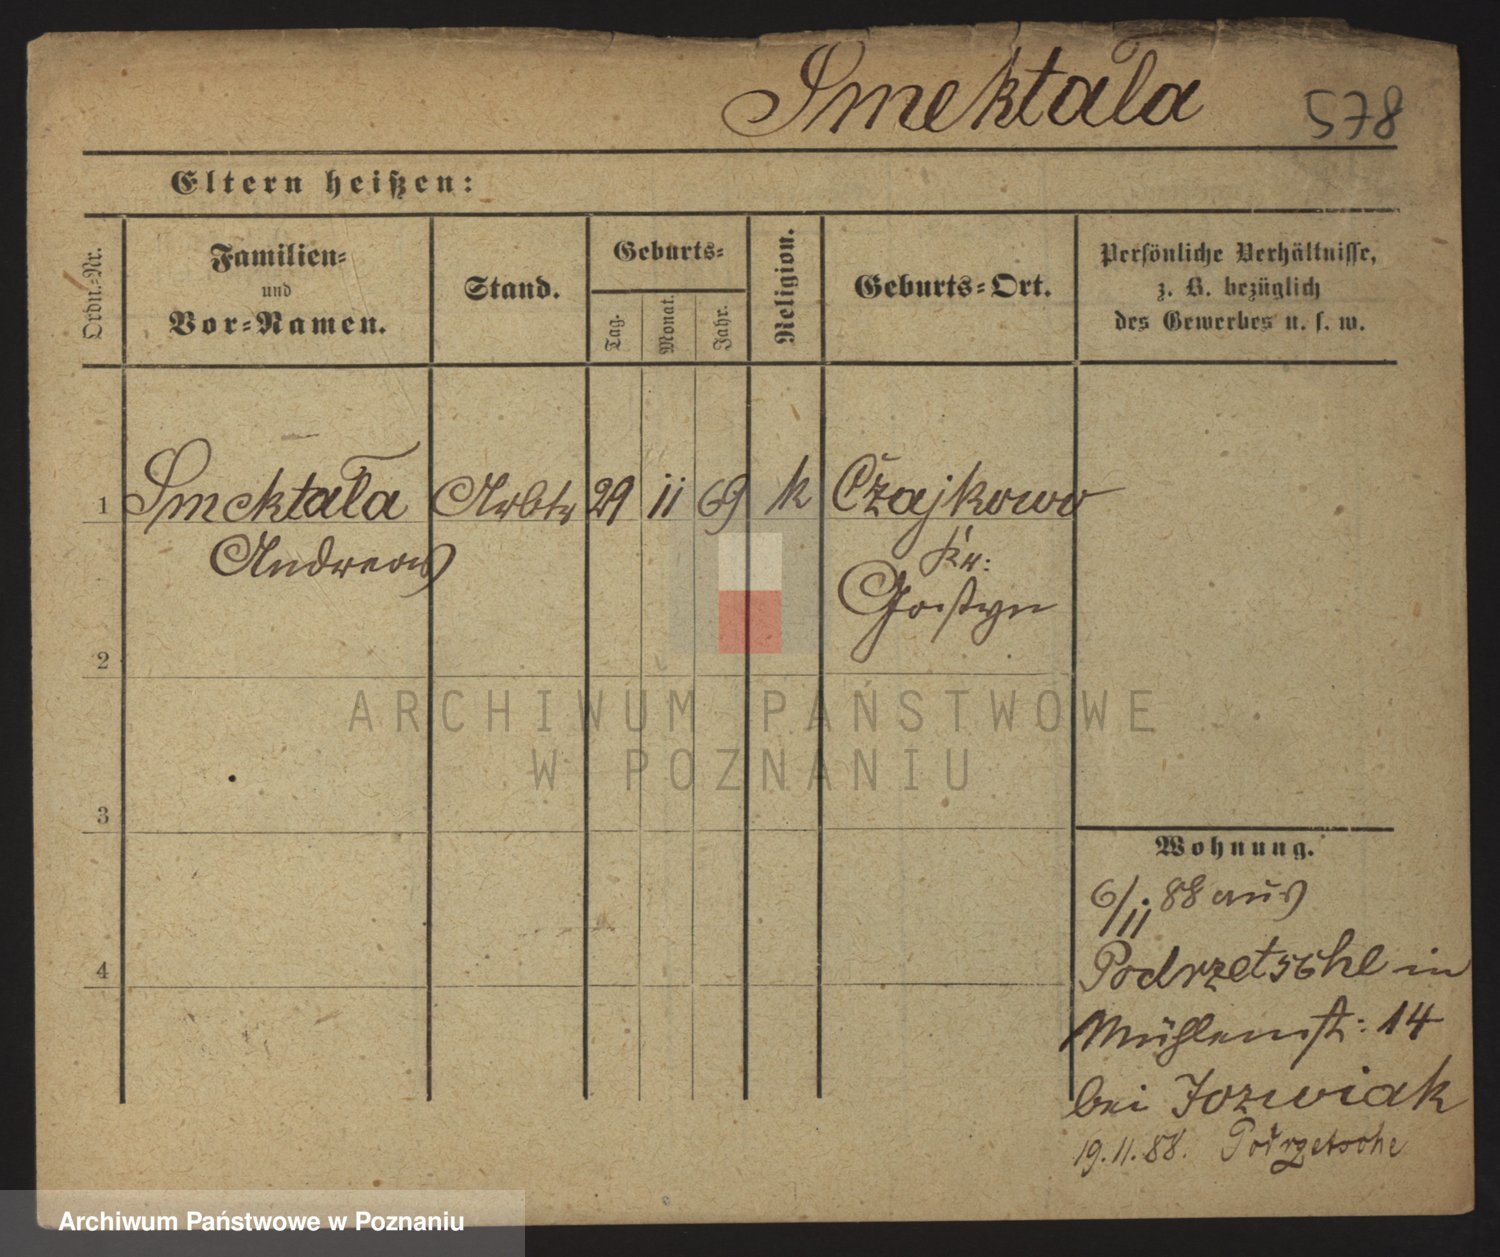 Smektała
578
Eltern heißen:
Ordn.-Nr.
Familien-
und
Vor-Namen.
Stand.
Geburts-
Tag.
Monat.
Jahr.
Religion.
Geburts-Ort.
Persönliche Verhältnisse,
z. B. bezüglich
des Gewerbes u. s. w.
1 Smektała Arbtr 29 11 69 k Czajkowo
Andreas
Kr:
Gostyn
2
ARCHIWUM PAŃSTWOWE
W POZNANIU
3
Wohnung.
6/11. 88 aus
4
Podrzetsche in
Mühlenst: 14
bei Jozwiak
19.11.88. Podrzetsche
Archiwum Państwowe w Poznaniu